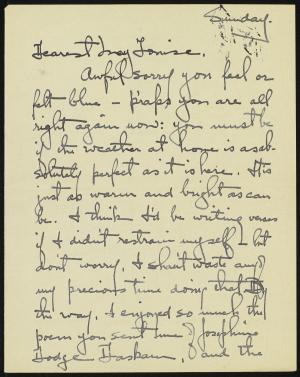 Sunday.
Dearest Inez Louise,
Awful sorry you feel or
felt blue – p'raps you are all
right again now: you must be
if the weather at home is as ab-
solutely perfect as it is here. It is
just as warm and bright as can
be. I think I'd be writing verses
if I didn't restrain myself – but
don't worry, I shan't waste any
my precious time doing that. By
the way, I enjoyed so much the
poem you sent me, Josephine
Dodge Daskam, and the